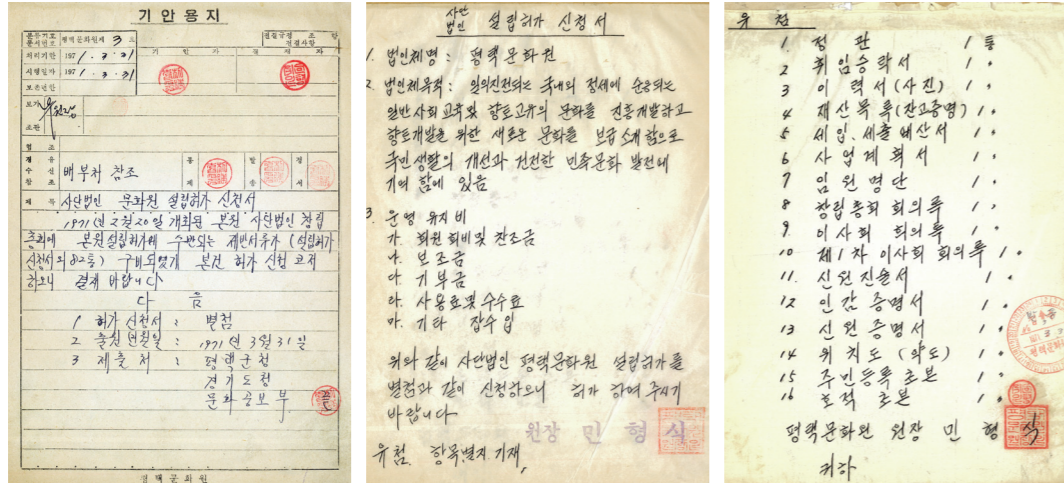 기안용지
분류기호
문서번호 평택문화원제 3 호
전결규정 조 항
전결사항
처리기한 1971. 3. 31
기안자 결재자
시행일자 1971. 3. 31
보존년한
보조기관
원장
협조
경유
수신
참조
배부처 참조
통제
발송
정서
제목 사단법인 문화원 설립허가 신청서
1971년 2월 20일 개최된 본원 사단법인 창립
총회에 본원설립허가에 수반되는 제반서류가 (설립허가
신청서외 82통) 구비되였겠 본건 허가 신청 코저
하오니 결재 바랍니다
다 음
1 허가 신청서 : 별첨
2 출원 년월일 : 1971년 3월 31일
3 제출처 : 평택군청
경기도청
문화공보부
평택군화원
사단
법인 설립허가 신청서
1. 법인체명 : 평택문화원
2. 법인체목적 : 일의진전되는 국내의 정세에 순응되는
일반사회교육및 향토고유의 문화를 진흥개발하고
향토개발을 위한 새로운 문화를 보급소개함으로
국민생활의 개선과 건전한 민족문화 발전에
기여함에 있음
3. 운영유지비
가. 회원회비및 찬조금
나. 보조금
다. 기부금
라. 사용료및수수료
마. 기타 잡수입
위와 같이 사단법인 평택문화원 설립허가를
별첨과 같이 신청하오니 허가 하여 주시기
바랍니다
원장 민형식
유첨. 항목별지기재,
유첨
1. 정관 1통
2 취임승락서 1 〃
3 이력서(사진) 1 〃
4 재산목록(잔고증명) 1 〃
5 세입.세출예산서 1 〃
6 사업계획서 1 〃
7 임원명단 1 〃
8 창립총회 회의록 1 〃
9. 이사회 회의록 1 〃
10 제1차 이사회 회의록 1 〃
11. 신원진술서 1 〃
12 인감증명서 1 〃
13 신원증명서 1 〃
14 위치도 (약도) 1 〃
15 주민등록초본 1 〃
16 호적초본 1 〃
평택문화원 원장 민형식
귀하